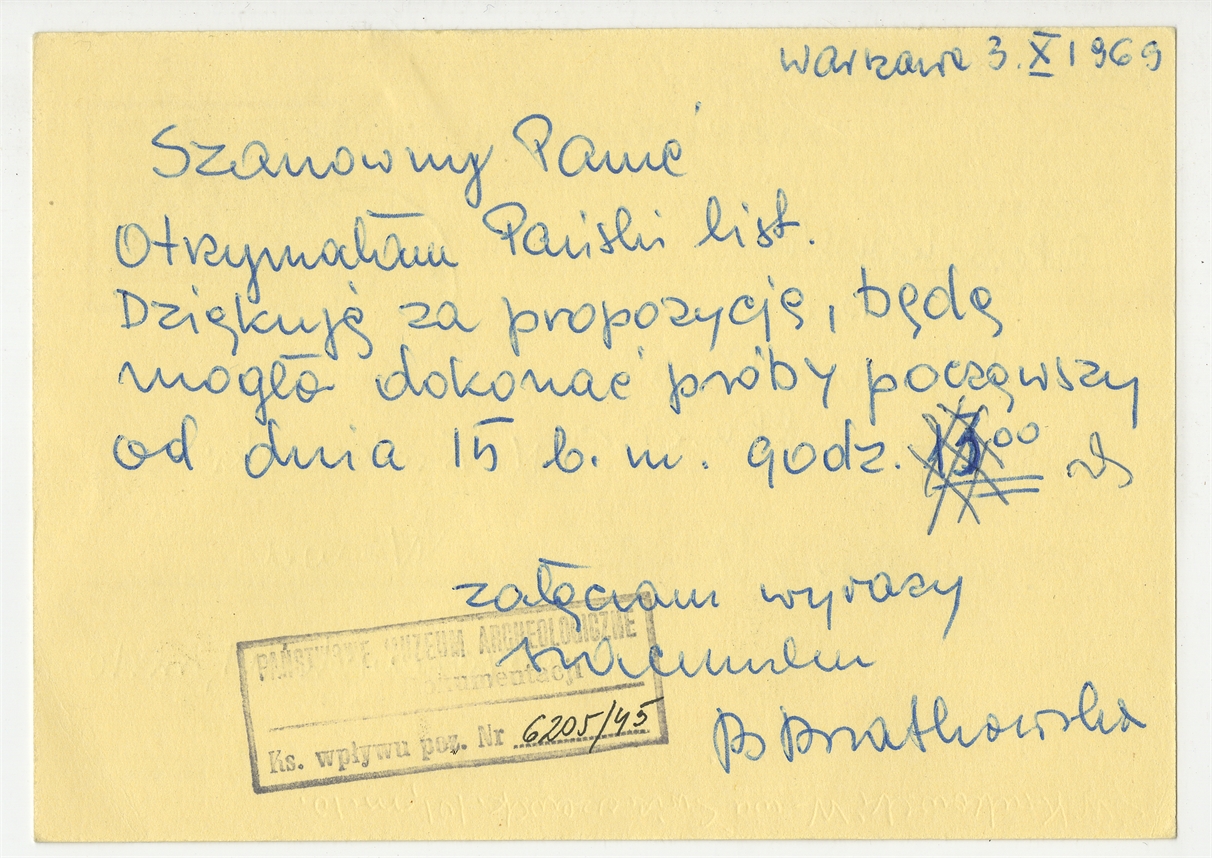 Warszawa 3.X 1969
Szanowny Panie
Otrzymałam Pański list.
Dziękuję za propozycję, będę
mogła dokonać próby począwszy
od dnia 15 b. m. godz. 13⁰⁰
załączam wyrazy
szacunku
PAŃSTWOWE MUZEUM ARCHEOLOGICZNE
Dokumentacji
Ks. wpływu poz. Nr 6205/45
B Bratkowska